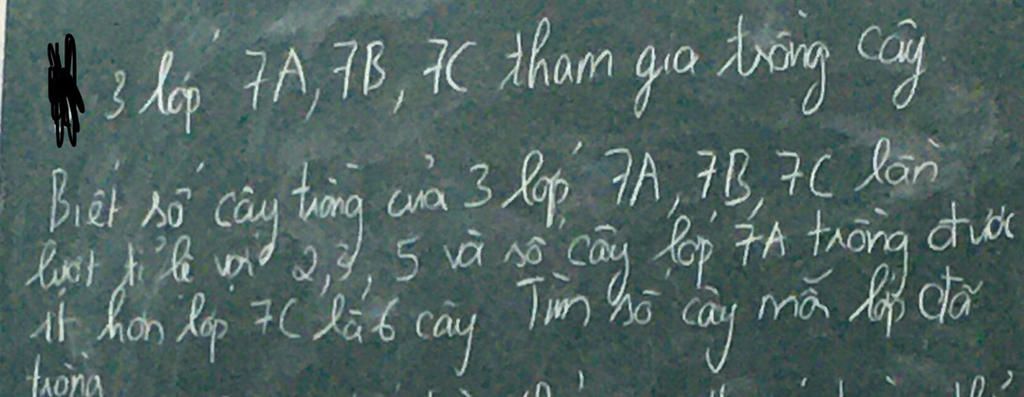 3 lớp 7A, 7B, 7C tham gia trồng cây
Biết số cây trồng của 3 lớp 7A, 7B, 7C lần
lượt tỉ lệ với 2, 3, 5 và số cây lớp 7A trồng được
ít hơn lớp 7C là 6 cây Tìm số cây mỗi lớp đã
trồng